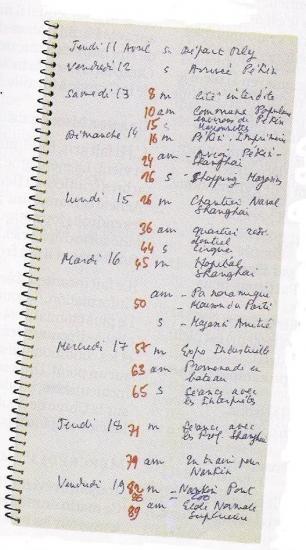 Jeudi 11 Avril s Départ Orly
Vendredi 12 s Arrivée Pékin
Samedi 13 8 m Cité interdite
10 am Commune Populaire
environs de Pékin
15 s Marionnettes
Dimanche 14 16 m Pékin. Imprimerie
24 am - Avion Pékin-
Shanghai
26 s - Shopping Magasins
Lundi 15 26 m Chantier Naval
Shanghai
36 am quartier rési
dentiel
44 s Cirque
Mardi 16 45 m Hôpital
Shanghai
am - Panoramique
50 - Maison du Parti
s - Magasin Amitié
Mercredi 17 57 m Expo Industrielle
63 am Promenade en
bateau
65 s Séance avec
les Interprètes
Jeudi 18 71 m Séance avec
les Prof. Shanghai
79 am En train pour
Nankin
Vendredi 19 82 m - Nankin Pont
86 - Zoo
89 am Ecole Normale
Supérieure